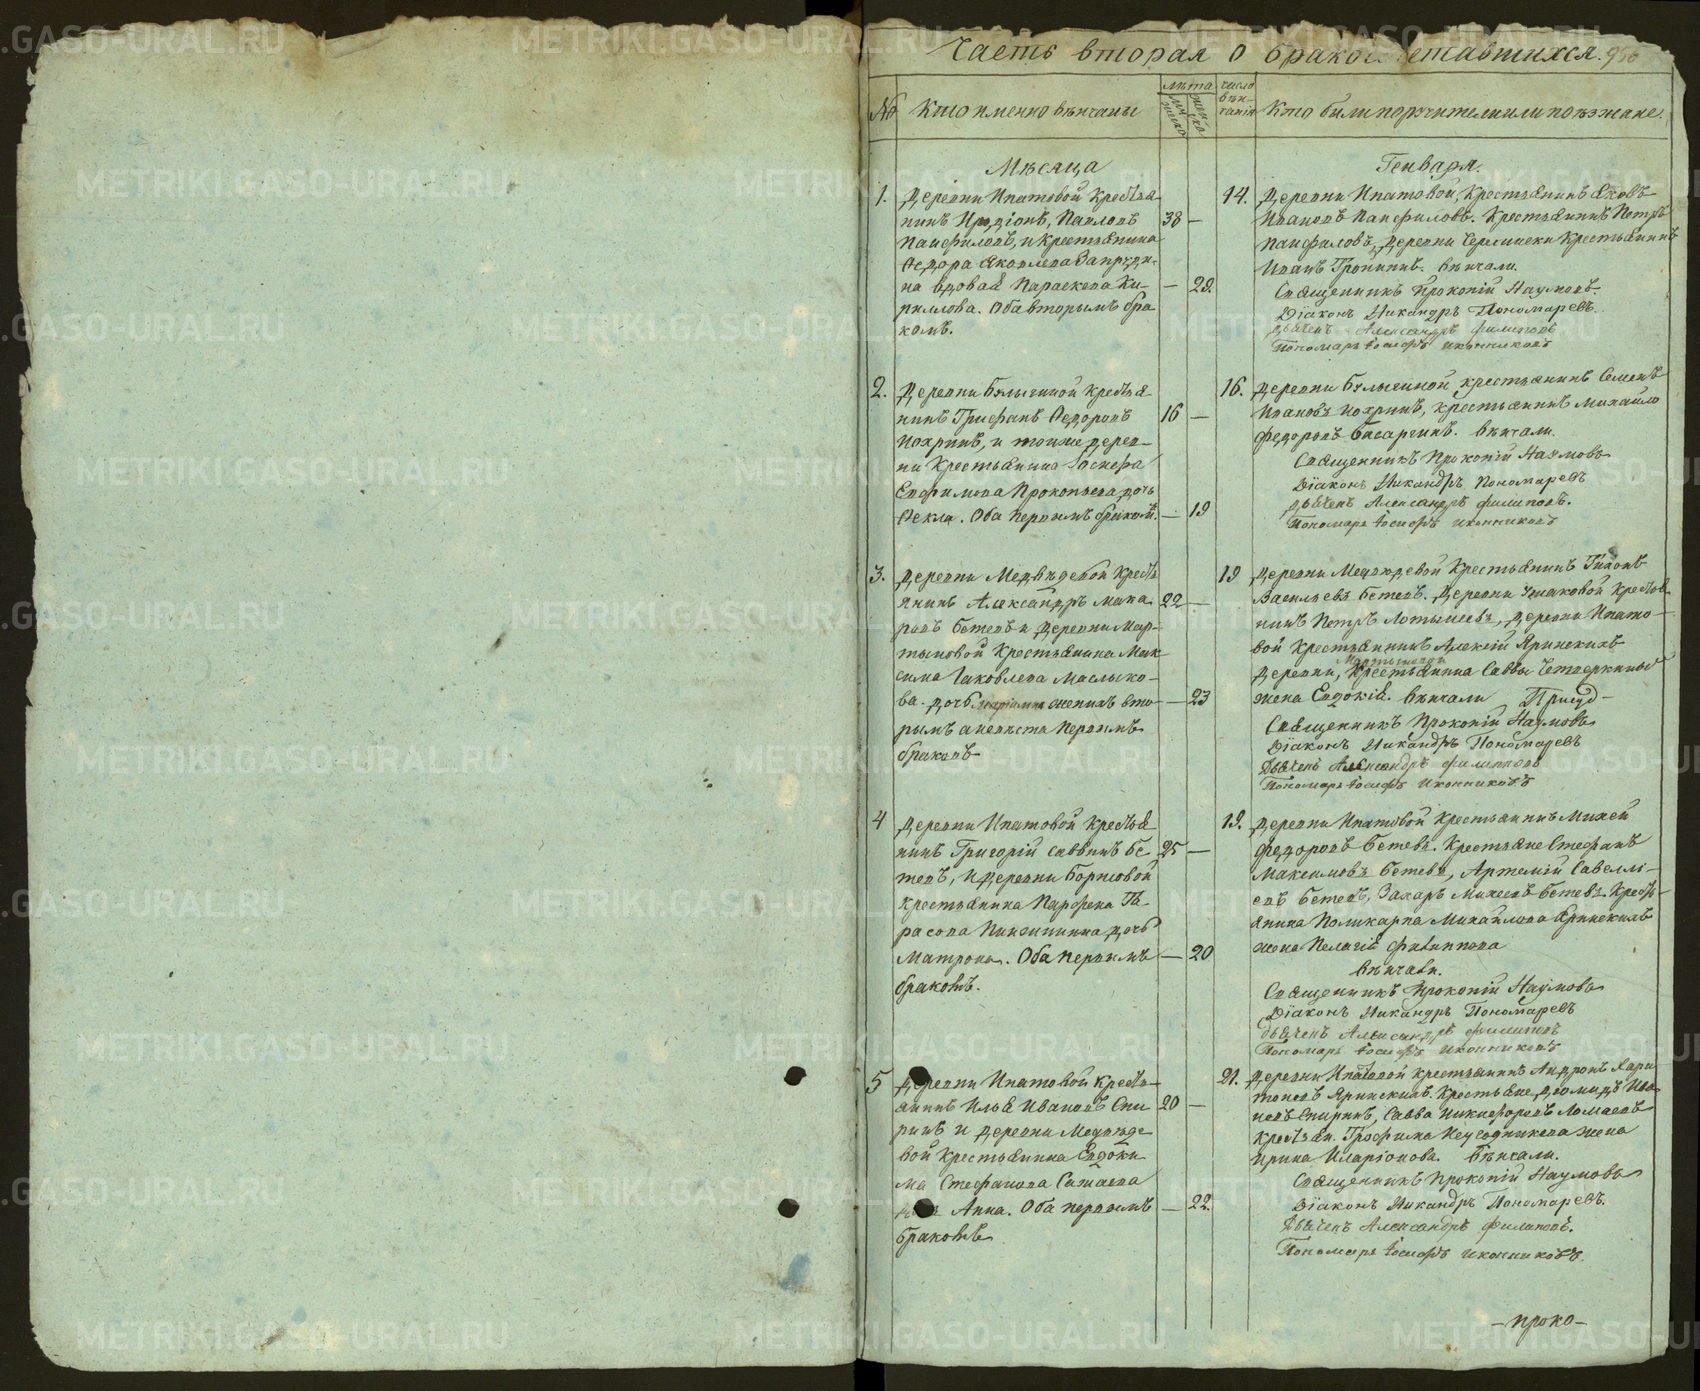 Часть вторая о бракосочетавшихся.
№
Кто именно вѣнчаны
лѣта
мужеско
женско
число вѣнчанія
Кто были поручители или поѣзжане.
Мѣсяца
Генваря.
1.
Деревни Ипатовой Крестья
нинъ Иродіонъ, Павловъ
Панфиловъ, и крестьянина
Ѳедора Яковлева
на вдова Параскева Ки-
риллова. Оба вторымъ бра
комъ.
38 —
— 29.
14.
Деревни Ипатовой, Крестьянинъ Яковъ
Ивановъ Панфиловъ. Крестьянинъ Петръ
Панфиловъ, Деревни Крестьянинъ
Иванъ Вѣнчали.
Священникъ Прокопій Наумовъ
Діаконъ Никандръ Пономаревъ
Дьячекъ Александръ Филиповъ
Пономарь Іосифъ Иконниковъ
2.
Деревни Булыгиной Крестья
нинъ Трифанъ Ѳедоровъ
Нохринъ, и тойже дерев-
ни Крестьянина
Евфимова Прокопьева дочь
Ѳекла. Оба первымъ бракомъ.
16 —
— 19
16.
Деревни Булыгиной крестьянинъ Семенъ
Ивановъ Нохринъ, крестьянинъ Михайло
Федоровъ Басаргинъ. Вѣнчали.
Священникъ Прокопій Наумовъ
Діаконъ Никандръ Пономаревъ
Дьячекъ Александръ Филиповъ.
Пономарь Іосифъ Иконниковъ
3.
Деревни Медвѣдевой Кресть
янинъ Александръ Мака
ровъ Бетевъ и Деревни Мар-
тыновой Крестьянина Мак
сима Іаковлева Маслыко-
ва дочь женихъ вто-
рымъ а невѣста первымъ
бракомъ
22 —
— 23
19
Деревни Медвѣдевой Крестьянинъ Тихонъ
Васильевъ Бетевъ. Деревни Ушаковой Крестья
нинъ Петръ Деревни Ипато-
вой Крестьянинъ Алексій Яринскихъ
Мартыновой
Деревни, Крестьянина Саввы Четверкина
жена Евдокія. Вѣнчали
Священникъ Прокопій Наумовъ
Діаконъ Никандръ Пономаревъ
Дьячекъ Александръ Филиповъ
Пономарь Іосифъ Иконниковъ
4
Деревни Ипатовой Крестья
нинъ Григорій Саввинъ Бе
тевъ, и Деревни Борисовой
крестьянина Парфена Та-
расова дочь
Матрона. Оба первымъ
бракомъ.
25 —
— 20
19.
Деревни Ипатовой Крестьянинъ Михей
Федоровъ Бетевъ. Крестьяне Стефанъ
Максимовъ Бетевъ, Артемій Савелье-
въ Бетевъ, Захаръ Михеевъ Бетевъ. Кресть-
янина Поликарпа Михайлова Яринскихъ
жена Пелагія Филиппова
Вѣнчали.
Священникъ Прокопій Наумовъ
Діаконъ Никандръ Пономаревъ
Дьячекъ Александръ Филиповъ
Пономарь Іосифъ Иконниковъ
5
Деревни Ипатовой Кресть-
янинъ Илья Ивановъ Спи
ринъ и Деревни Медвѣде
вой Крестьянина Евдоки
ма Стефанова
дочь Анна. Оба первымъ
бракомъ
20 —
— 22.
21.
Деревни Ипатовой крестьянинъ Андронъ Хари
тоновъ Яринскихъ. Крестьяне, Дiомидъ Ива-
новъ Спиринъ, Савва Никифоровъ Ломаевъ
Крестьян. Трофима жена
Ирина Иларіонова. Вѣнчали.
Священникъ Прокопій Наумовъ
Діаконъ Никандръ Пономаревъ.
Дьячекъ Александръ Филиповъ.
Пономарь Іосифъ Иконниковъ.
— проко —
METRIKI.GASO-URAL.RU